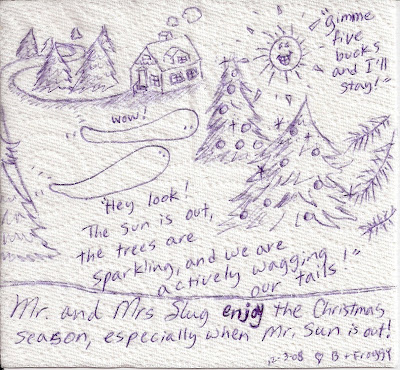 "Gimme
five
bucks
and I'll
stay!"
wow!
"Hey look!
The sun is out,
the trees are
sparkling, and we are
actively wagging
our tails!"
Mr. and Mrs Slug enjoy the Christmas
season, especially when Mr. Sun is out!
12-3-08 ♡ B + Froggy